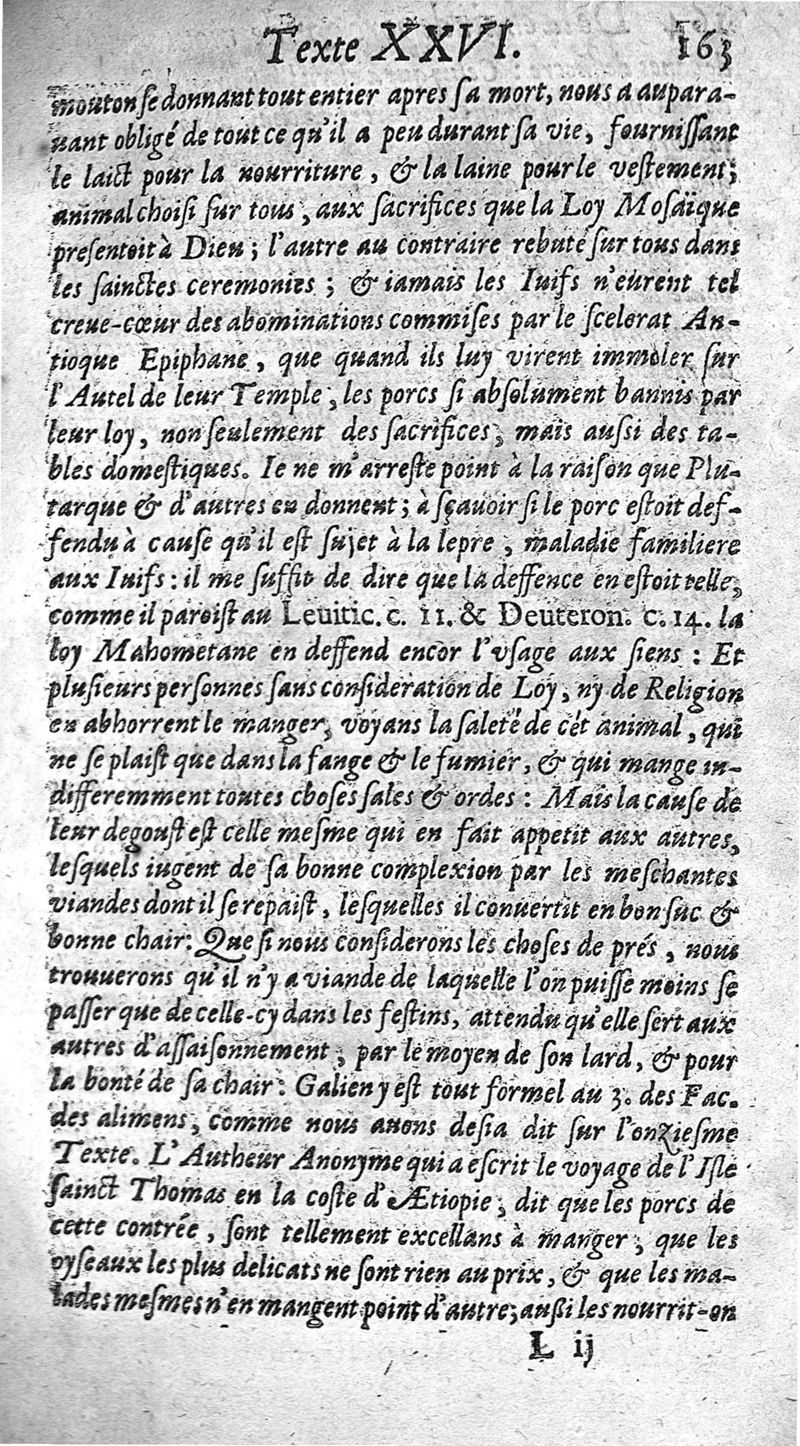 Texte XXVI. 163
mouton se donnant tout entier apres sa mort, nous a aupara-
uant obligé de tout ce qu'il a peu durant sa vie, fournissant
le laict pour la nourriture, & la laine pour le vestement;
animal choisi sur tous, aux sacrifices que la Loy Mosaïque
presentoit à Dieu; l'autre au contraire rebuté sur tous dans
les sainctes ceremonies; & iamais les Iuifs n'eurent tel
creue-cœur des abominations commises par le scelerat An-
tioque Epiphane, que quand ils luy virent immoler sur
l'Autel de leur Temple, les porcs si absolument bannis par
leur loy, non seulement des sacrifices, mais aussi des ta-
bles domestiques. Ie ne m'arreste point à la raison que Plu-
tarque & d'autres en donnent; à sçavoir si le porc estoit def-
fendu à cause qu'il est sujet à la lepre, maladie familiere
aux Iuifs: il me suffit de dire que la deffence en estoit telle,
comme il paroist au Leuitic. c. 11. & Deuteron. c. 14. la
loy Mahometane en deffend encor l'vsage aux siens: Et
plusieurs personnes sans consideration de Loy, ny de Religion
en abhorrent le manger, voyans la saleté de cét animal, qui
ne se plaist que dans la fange & le fumier, & qui mange in-
differemment toutes choses sales & ordes: Mais la cause de
leur degoust est celle mesme qui en fait appetit aux autres,
lesquels iugent de sa bonne complexion par les meschantes
viandes dont il se repaist, lesquelles il conuertit en bon suc &
bonne chair: Que si nous considerons les choses de prés, nous
trouuerons qu'il n'y a viande de laquelle l'on puisse moins se
passer que de celle-cy dans les festins, attendu qu'elle sert aux
autres d'assaisonnement, par le moyen de son lard, & pour
la bonté de sa chair: Galien y est tout formel au 3. des Fac.
des alimens, comme nous auons desia dit sur l'onziesme
Texte. L'Autheur Anonyme qui a escrit le voyage de l'Isle
sainct Thomas en la coste d'Ætiopie, dit que les porcs de
cette contrée, sont tellement excellans à manger, que les
oyseaux les plus delicats ne sont rien au prix, & que les ma-
lades mesmes n'en mangent point d'autre; aussi les nourrit-on
L ij